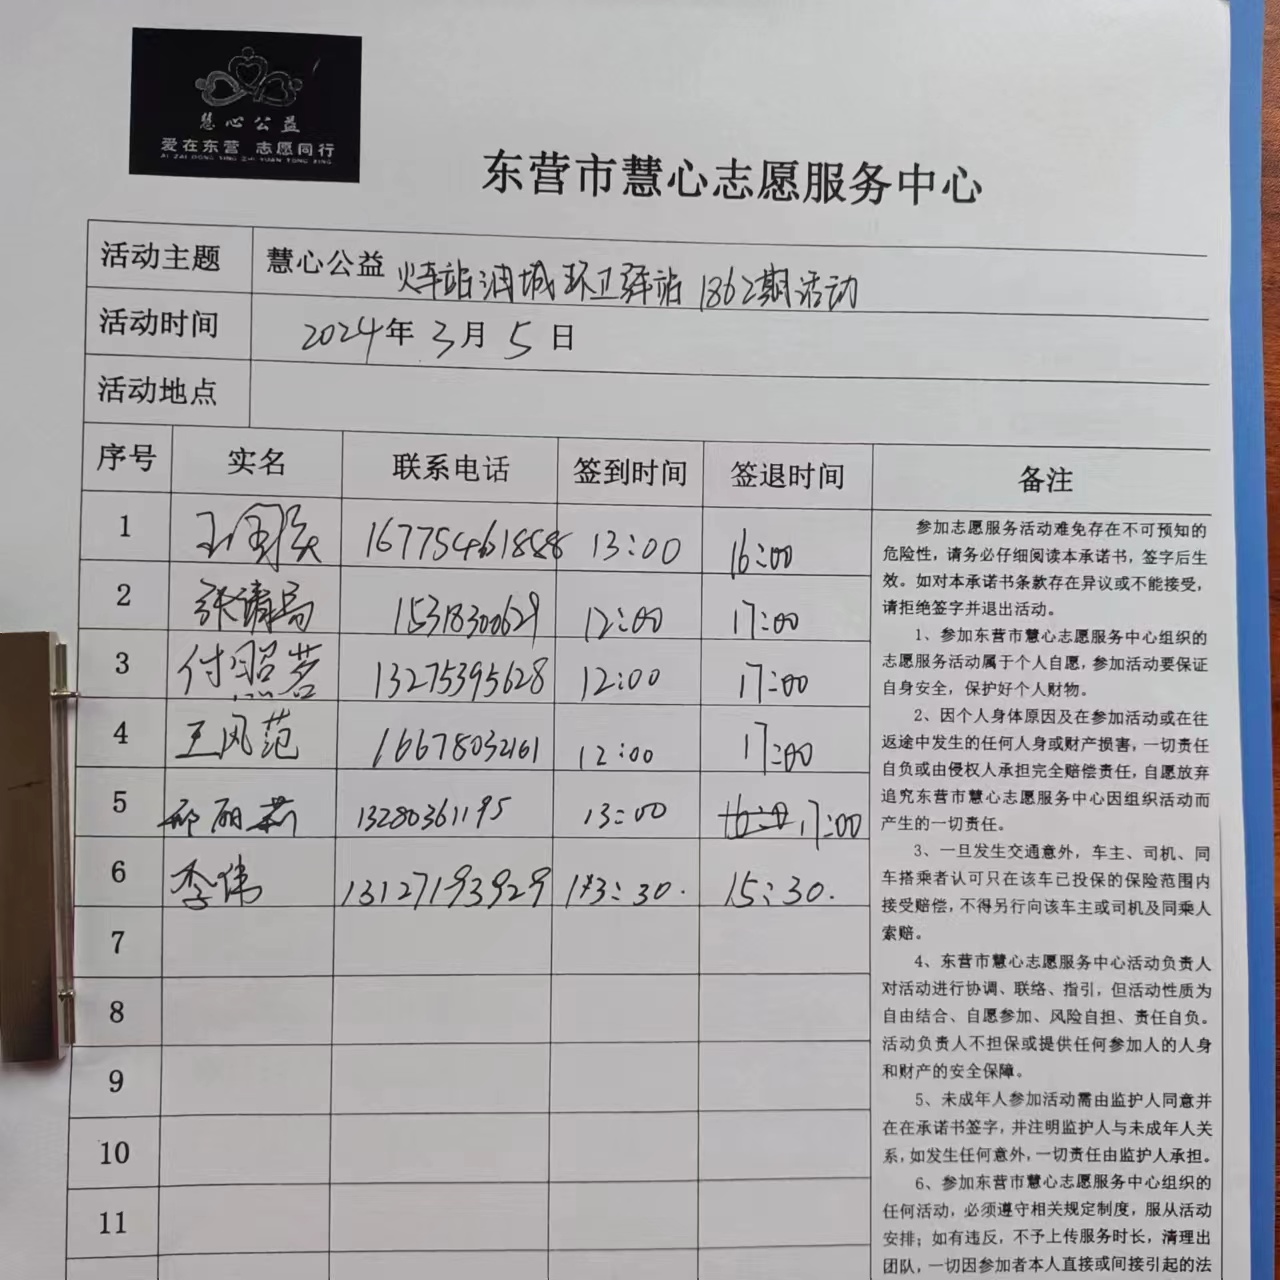 慧心公益
爱在东营 志愿同行
AI ZAI DONG YING ZHI YUAN TONG XING
东营市慧心志愿服务中心
活动主题 慧心公益 火车站油城环卫驿站1862期活动
活动时间 2024年3月5日
活动地点
序号 实名 联系电话 签到时间 签退时间 备注
1 13:00 16:00
2 15318300629 12:00 17:00
3 付照茗 13275395628 12:00 17:00
4 王风范 16678032161 12:00 17:00
5 邴丽莉 13280361195 13:00 17:00
6 李伟 13127193929 13:30. 15:30.
7
8
9
10
11
参加志愿服务活动难免存在不可预知的
危险性，请务必仔细阅读本承诺书，签字后生
效。如对本承诺书条款存在异议或不能接受，
请拒绝签字并退出活动。
1、参加东营市慧心志愿服务中心组织的
志愿服务活动属于个人自愿，参加活动要保证
自身安全，保护好个人财物。
2、因个人身体原因及在参加活动或在往
返途中发生的任何人身或财产损害，一切责任
自负或由侵权人承担完全赔偿责任，自愿放弃
追究东营市慧心志愿服务中心因组织活动而
产生的一切责任。
3、一旦发生交通意外，车主、司机、同
车搭乘者认可只在该车已投保的保险范围内
接受赔偿，不得另行向该车主或司机及同乘人
索赔。
4、东营市慧心志愿服务中心活动负责人
对活动进行协调、联络、指引，但活动性质为
自由结合、自愿参加、风险自担、责任自负。
活动负责人不担保或提供任何参加人的人身
和财产的安全保障。
5、未成年人参加活动需由监护人同意并
在在承诺书签字，并注明监护人与未成年人关
系，如发生任何意外，一切责任由监护人承担。
6、参加东营市慧心志愿服务中心组织的
任何活动，必须遵守相关规定制度，服从活动
安排；如有违反，不予上传服务时长，清理出
团队，一切因参加者本人直接或间接引起的法